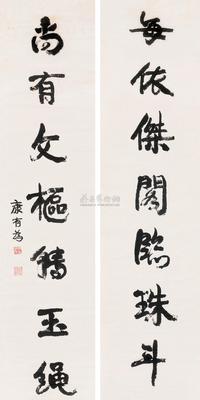 每依傑閣臨珠斗
尚有文樞玉繩
康有為